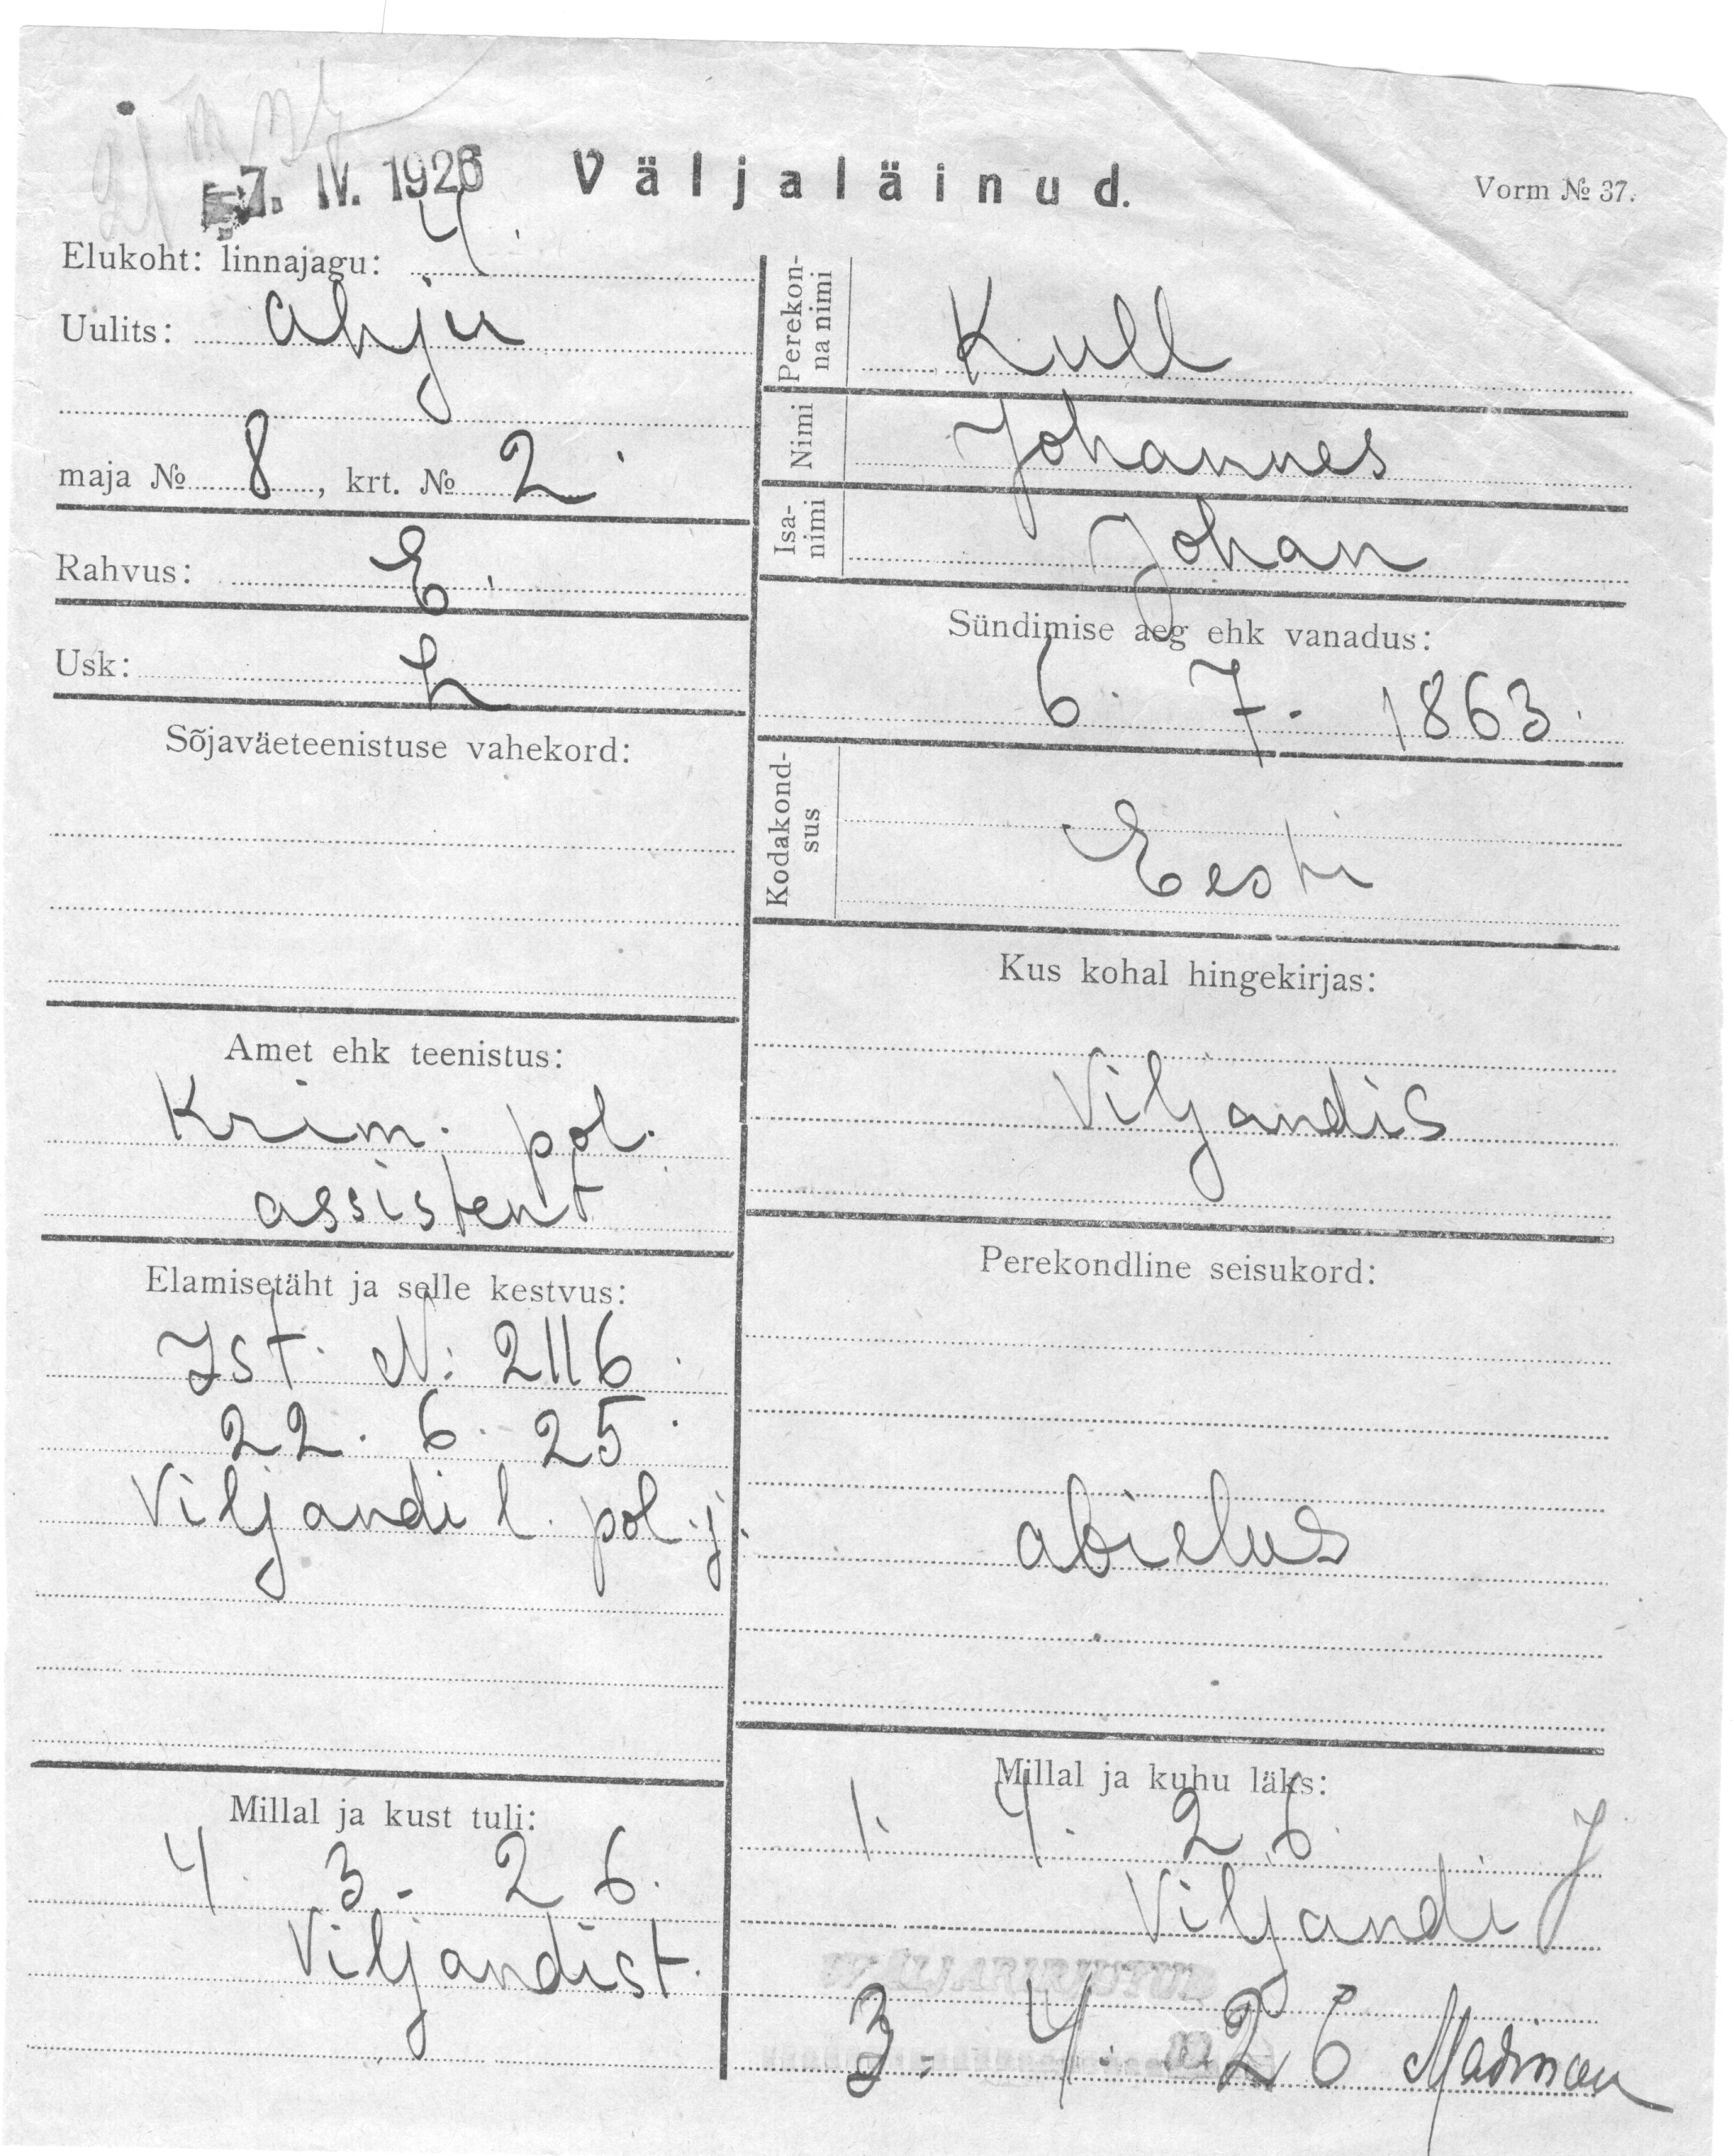 -7. IV. 1926 Väljaläinud. Vorm № 37.
Elukoht: linnajagu: 4.
Uulits: Ahju
maja № 8, krt. № 2.
Rahvus: E.
Usk: L
Sõjaväeteenistuse vahekord:
Amet ehk teenistus:
Krim. pol.
assistent
Elamisetäht ja selle kestvus:
Ist. N: 2116.
22. 6. 25.
Viljandi l. pol. j.
Millal ja kust tuli:
4. 3. - 26.
Viljandist.
Perekon-
na nimi
Kull
Nimi Johannes
Isa-
nimi
Johan
Sündimise aeg ehk vanadus:
6. 7. 1863.
Kodakond-
sus
Eesti
Kus kohal hingekirjas:
Viljandis
Perekondline seisukord:
abielus
Millal ja kuhu läks:
1. 4. 26.
Viljandi
VÄLJAKIRJUTUD
3. 4. 26